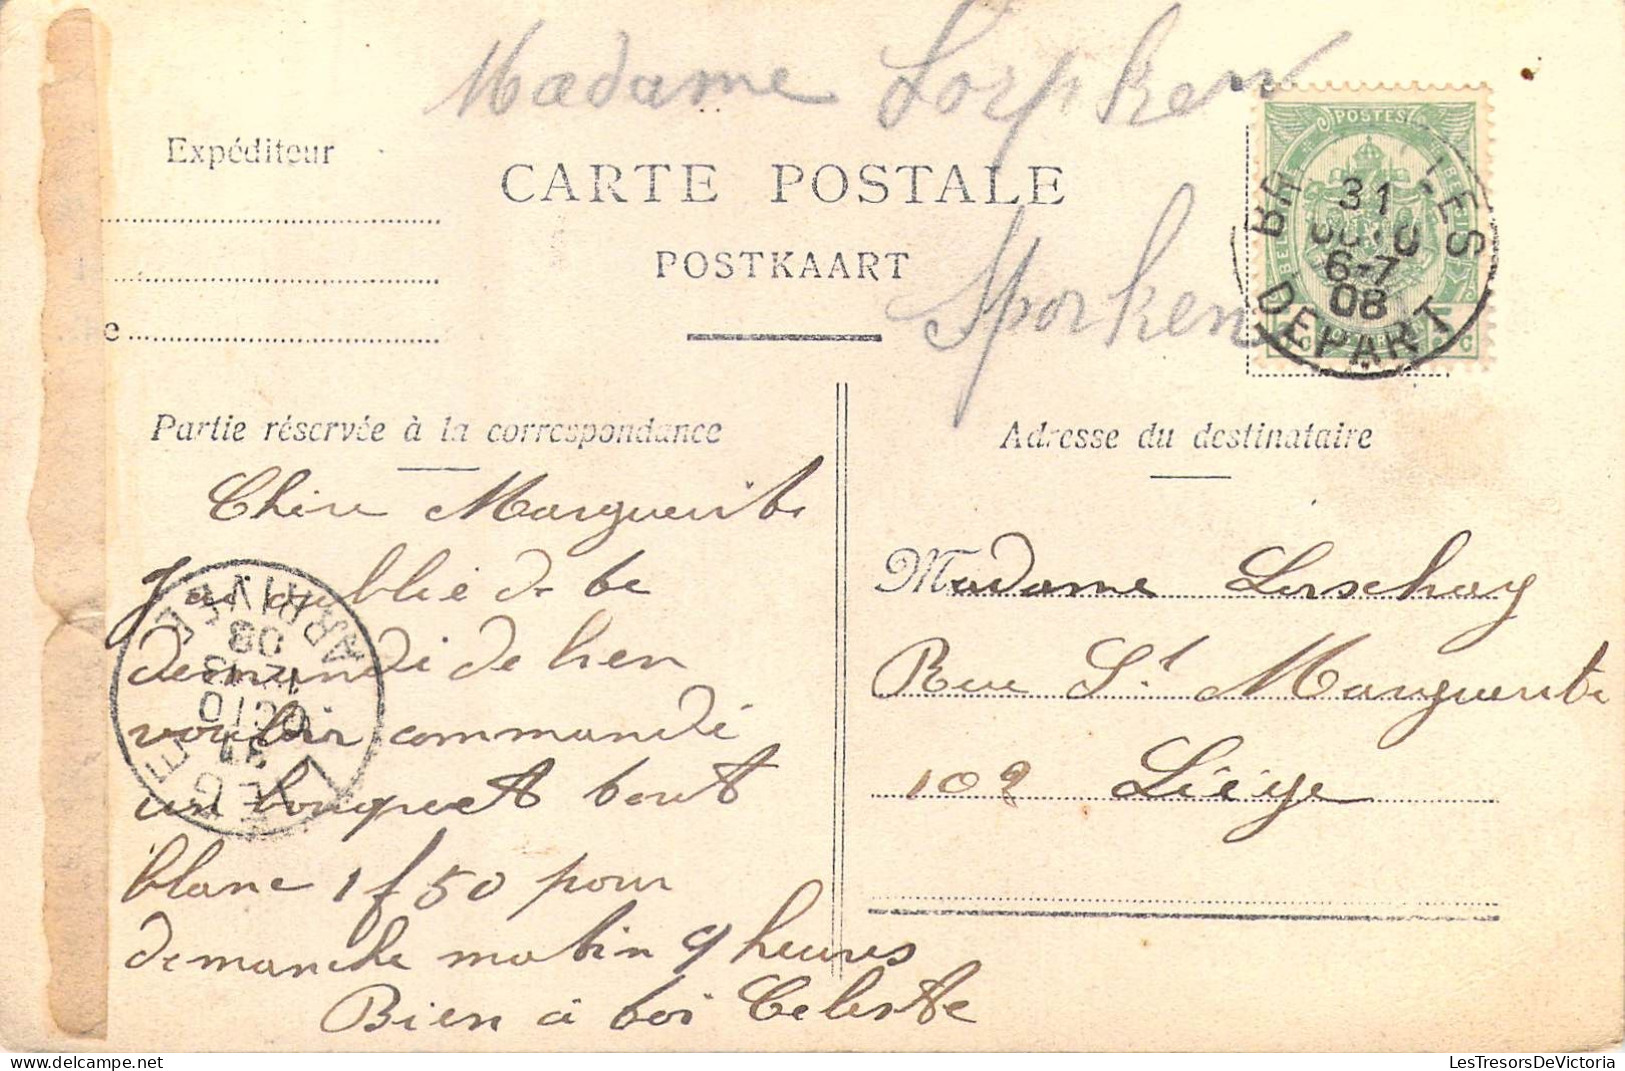 Madame Lorpken
Expéditeur
CARTE POSTALE
POSTKAART
Sporken
POSTES
31
6-7
08
DEPART
Partie réservée à la correspondance
Adresse du destinataire
Chère Marguerite
J'ai oublié de te
demandé de bien
vouloir commandé
un bouquet tout
blanc 1 f 50 pour
demanche matin 9 heures
Bien à toi Celeste
Madame Lerschay
Rue St Marguerite
102 Liége
ARRIVEE
08
12-13
OCTO
31
LIEGE
LesTresorsDeVictoria.com